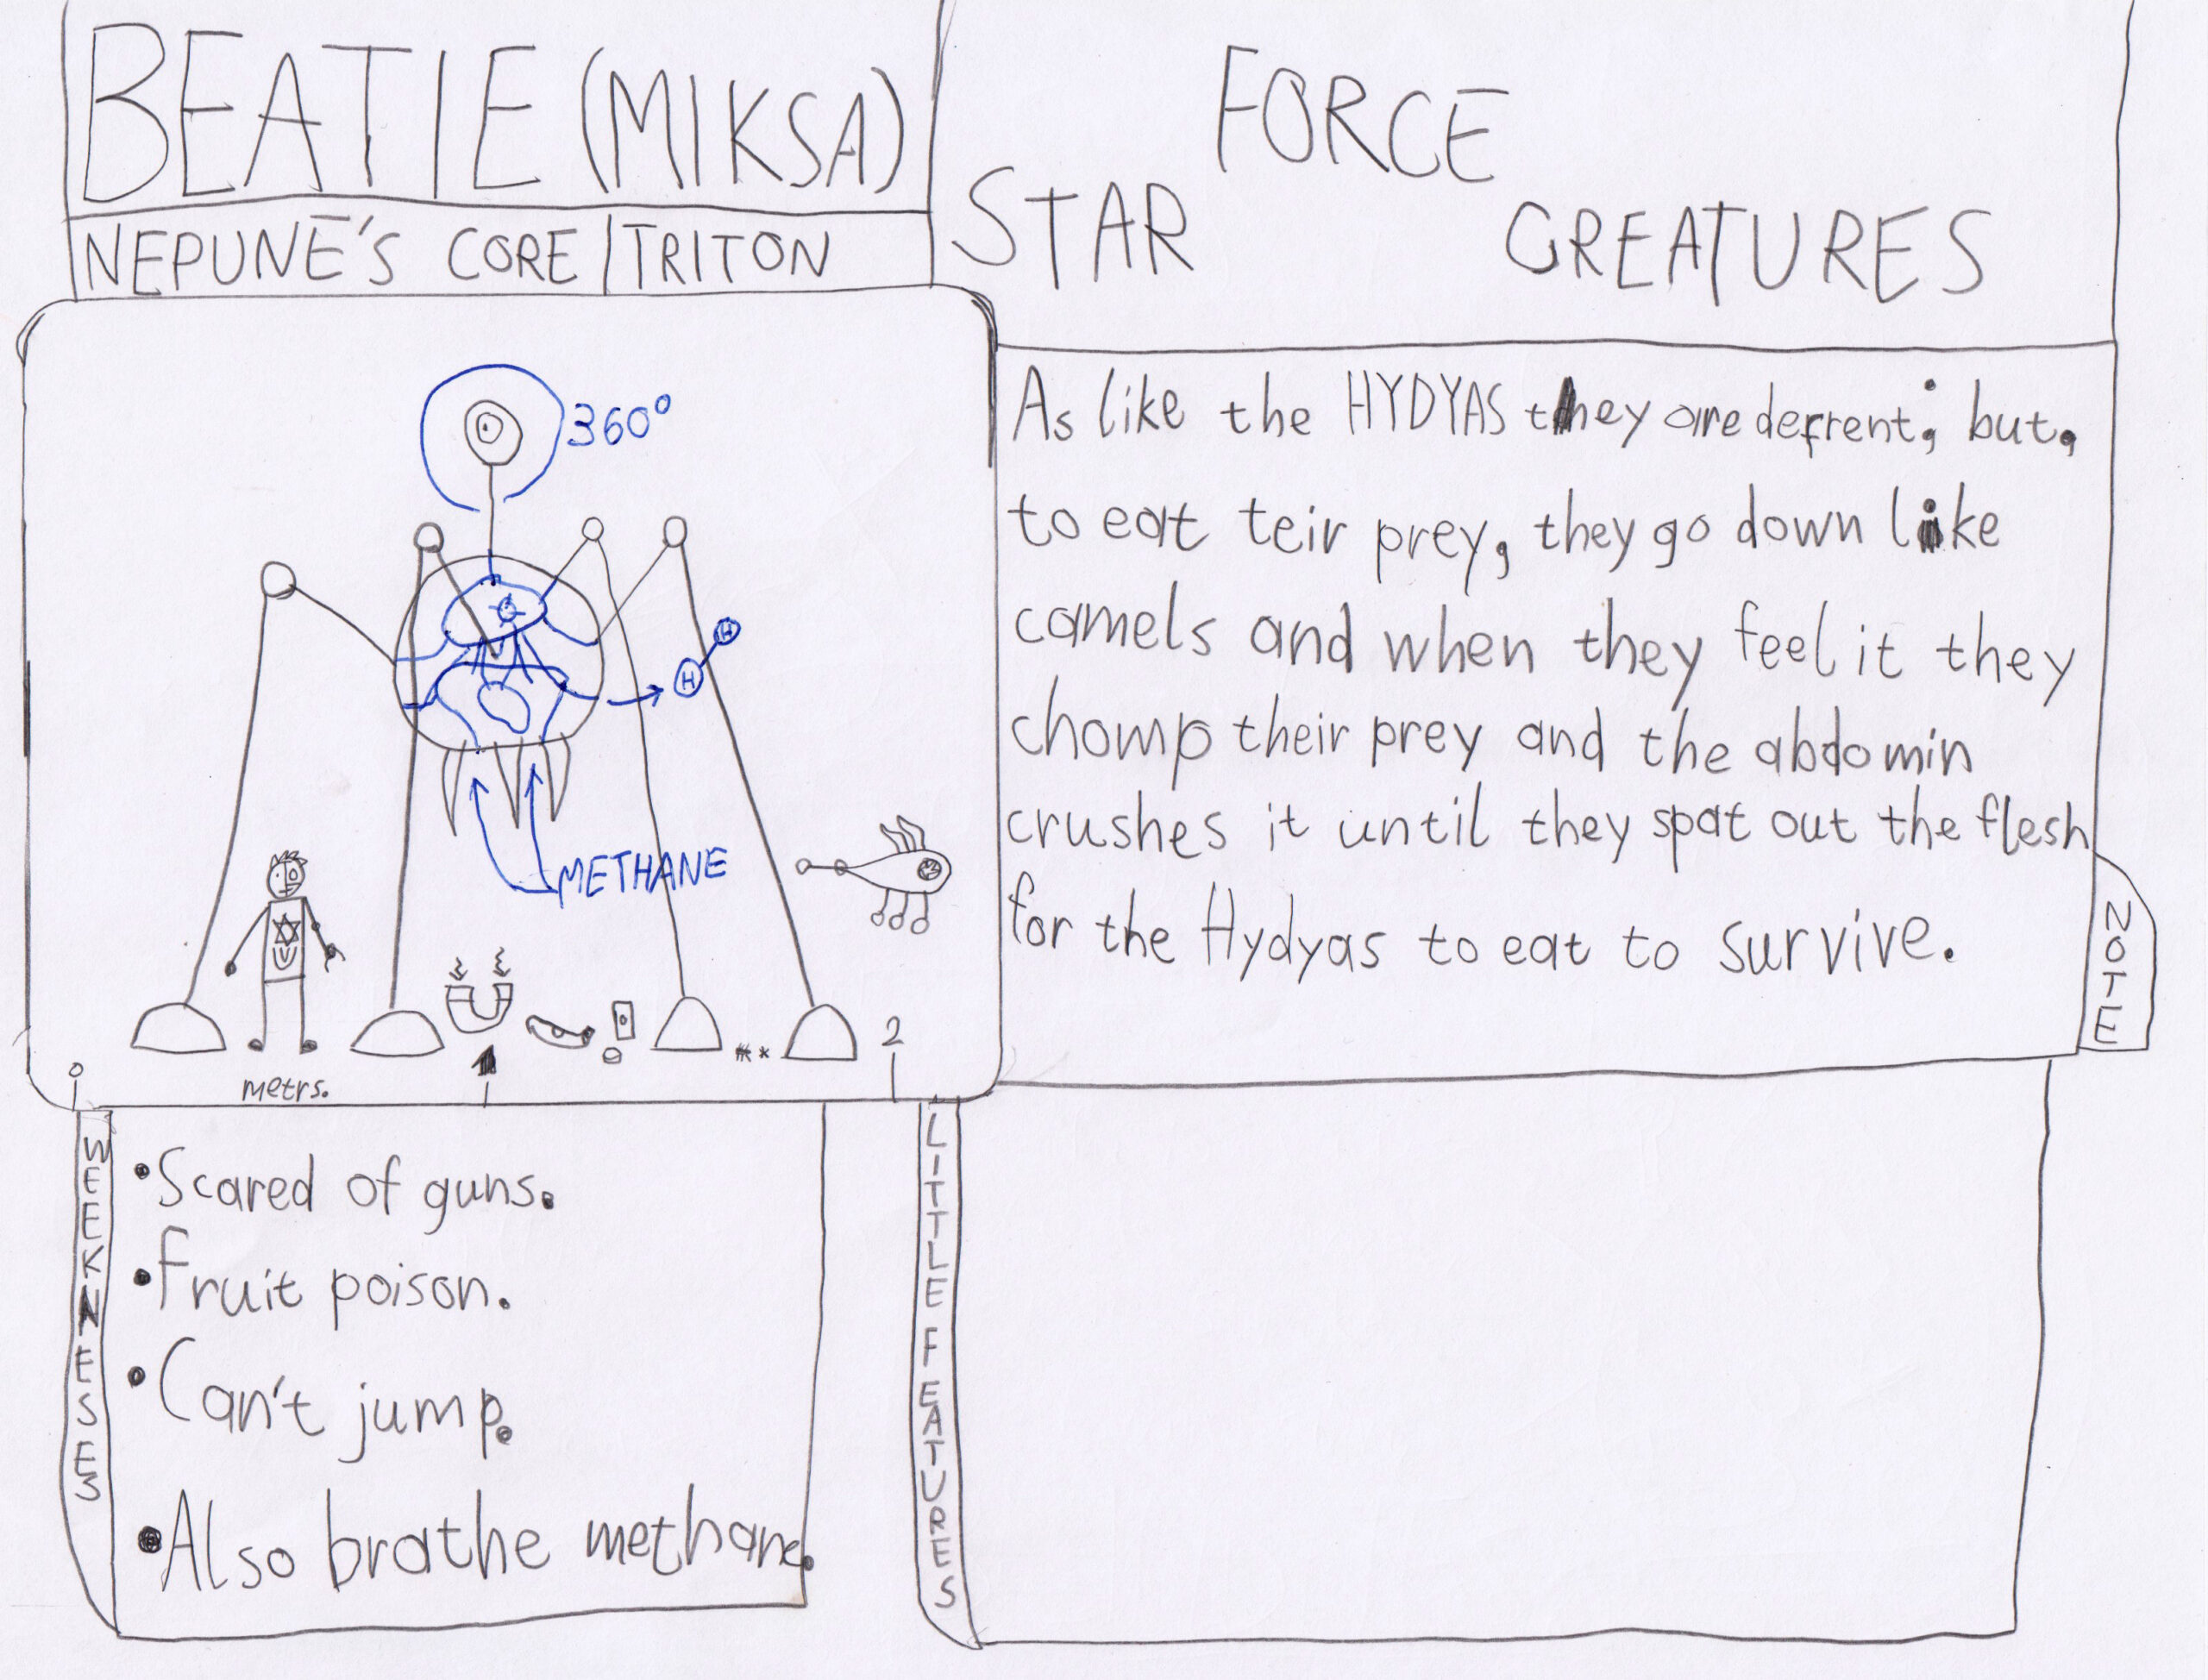 BEATIE (MIKSA)
NEPUNE'S CORE | TRITON
STAR FORCE CREATURES
360°
H
H
METHANE
0 metrs. 1 2
As like the HYDYAS they are defrent; but,
to eat teir prey, they go down like
camels and when they feel it they
chomp their prey and the abdomin
crushes it until they spat out the flesh
for the Hydyas to eat to survive.
NOTE
WEEKNESSES
•Scared of guns.
•Fruit poison.
•Can't jump.
•Also brathe methane.
LITTLE FEATURES